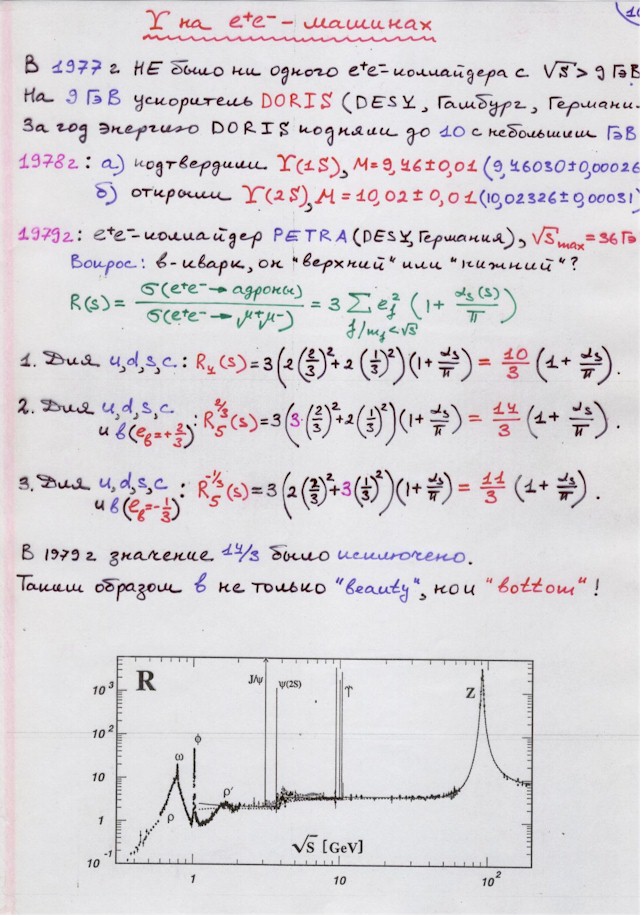 ϒ на e⁺e⁻ - машинах
В 1977 г НЕ было ни одного e⁺e⁻-коллайдера с √S > 9 ГэВ
На 9 ГэВ ускоритель DORIS (DESY, Гамбург, Германи
За год энергию DORIS подняли до 10 с небольшим ГэВ
1978г: а) подтвердили ϒ(1S), M = 9,46 ± 0,01 (9,46030 ± 0,00026
б) открыли ϒ(2S), M = 10,02 ± 0,01 (10,02326 ± 0,00031)
1979г: e⁺e⁻-коллайдер PETRA (DESY, Германия), √S max = 36 Гэ
Вопрос: b-кварк, он "верхний" или "нижний"?
R(s) = σ(e⁺e⁻ → адроны) / σ(e⁺e⁻ → μ⁺μ⁻) = 3 ∑ f/m_f<√s e_f² (1 + α_s(s)/π)
1. Для u,d,s,c: R₄(s) = 3(2(2/3)² + 2(1/3)²)(1 + α_s/π) = 10/3 (1 + α_s/π).
2. Для u,d,s,c и b (e_b = +2/3): R₅^{2/3}(s) = 3(3·(2/3)² + 2(1/3)²)(1 + α_s/π) = 14/3 (1 + α_s/π).
3. Для u,d,s,c и b (e_b = -1/3): R₅^{-1/3}(s) = 3(2(2/3)² + 3(1/3)²)(1 + α_s/π) = 11/3 (1 + α_s/π).
В 1979 г значение 14/3 было исключено.
Таким образом b не только "beauty", но и "bottom"!
R
J/ψ ψ(2S) ϒ Z
ω φ
ρ ρ′
10³
10²
10
1
10⁻¹
√S [GeV]
1 10 10²